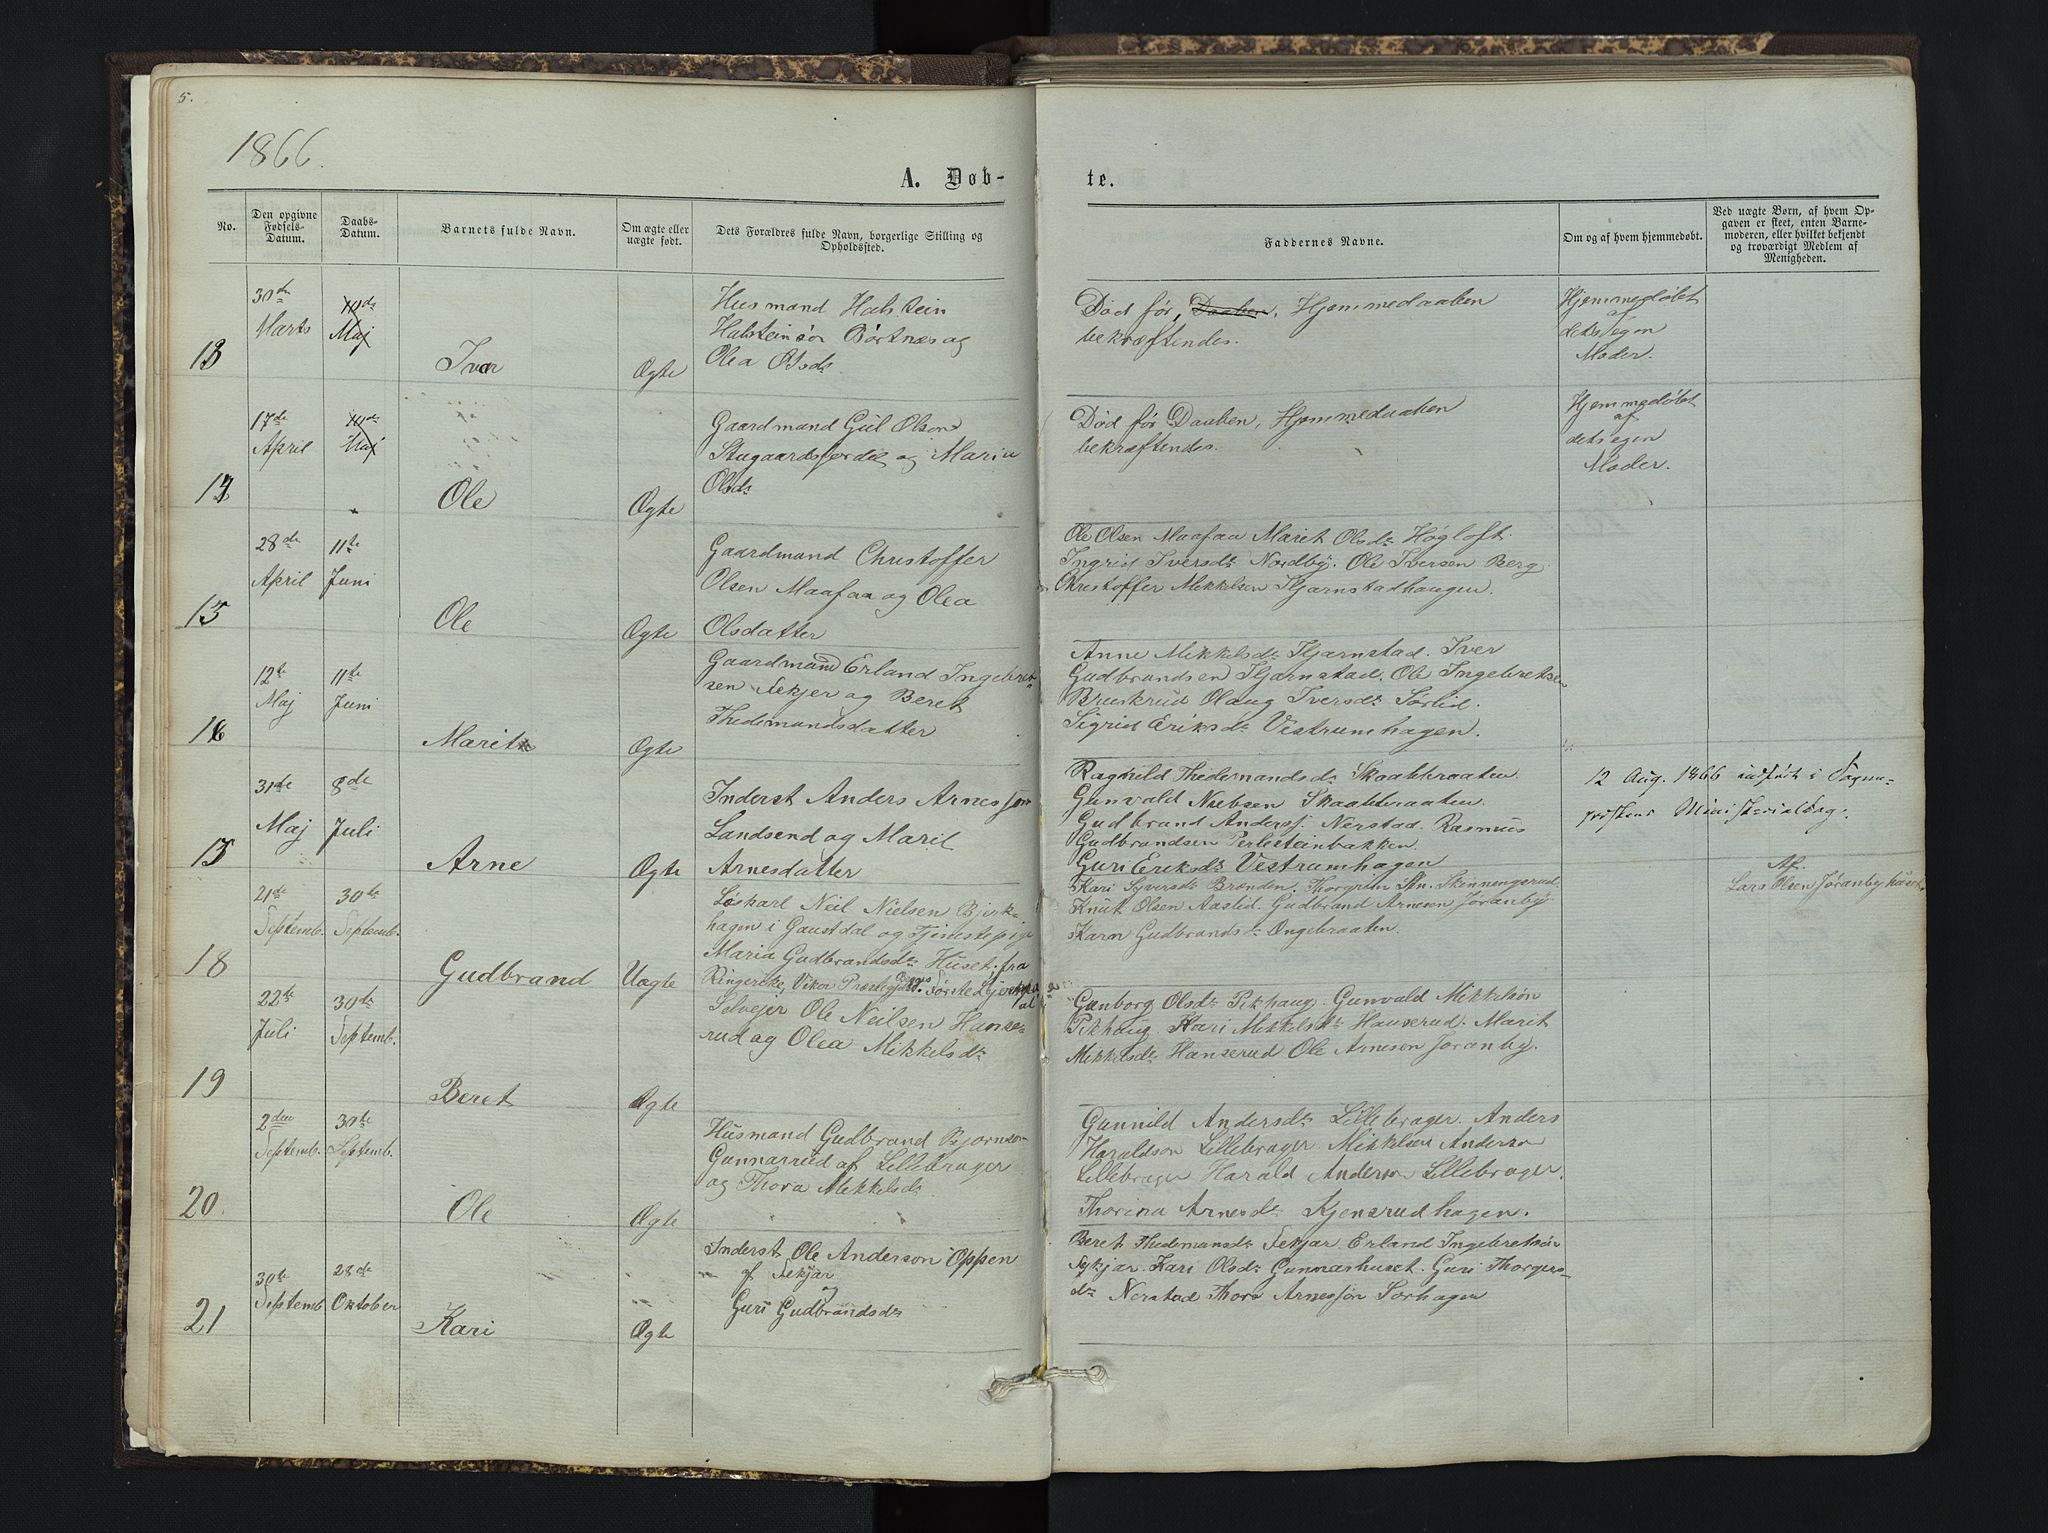 5.
1866.
A. Døb-
te.
No.
Den opgivne
Fødsels-
Datum.
Daabs-
Datum.
Barnets fulde Navn.
Om ægte eller
uægte født.
Dets Forældres fulde Navn, borgerlige Stilling og
Opholdssted.
Faddernes Navne.
Om og af hvem hjemmedøbt.
Ved uægte Børn, af hvem Op-
gaven er skeet, enten Barne-
moderen, eller hvilket bekjendt
og troværdigt Medlem af
Menigheden.
13
30de
Marts
Maj
Ivar
Ægte
Husmand Halstein
Halsteinsør Børtnæs og
Olea Olsdr
Død før, Daaben, Hjemmedaaben
bekræftendes.
Hjemmedøbt
af
dets egen
Moder.
17de
April
Maj
Ole
Ægte
Gaardmand Gul Olson
og Maria
Olsdr
Død før Daaben, Hjemmedaaben
bekræftendes.
Hjemmedøbt
af
dets egen
Moder.
15
28de
April
11te
Juni
Ole
Ægte
Gaardmand Christoffer
Olsen Maafaa og Olea
Olsdatter
Ole Olsen Maafaa Marit Olsdr Høgloft.
Ingrid Iversdr Nordby. Ole Iversen Berg.
Christoffer Mikkelsen Hjarnstadhaugen.
16
12te
Maj
11te
Juni
Marit
Ægte
Gaardmand Erland Ingebret-
sen Sekjer og Beret
Thidemandsdatter
Anne Mikkelsdr Hjarnstad. Iver
Gudbrandsen Hjarnstad. Ole Ingebretsen
Bruskrud Olaug Iversdr Sørlid.
Sigrid Eriksdr Vestrumhagen.
31te
Maj
8de
Juli
Arne
Ægte
Inderst Anders Arnesson
Landsend og Maril
Arnesdatter
Ragnild Thidemandsdr Skaabteraaten.
Gunvald Nielsen Skaabteraaten.
Gudbrand Anderss. Nerstad. Rasmus
Gudbrandsen Perlesteinbakken.
Guri Eriksdr Vestrumhagen
12 Aug. 1866 indført i Sogne-
prestens Ministerialbog.
18
21de
Septemb.
30te
Septemb.
Gudbrand
Uægte
Løskarl Neil Nielsen Bjerk-
hagen i Gausdal og Tjenestepige
Maria Gudbrandsdr Huset, fra
Ringerike, Viker Præstegjeld.
Kari Syversdr Brænden. Thorgrim Stn. Skinnengsrud.
Knut Olsen Aaslid. Gudbrand Arnesen Joranby
Karn Gudbrandsdr Ongebraaten.
Af
Lars Olsen Joranbyhuset
19
22te
Juli
30te
Septemb.
Beret
Ægte
Selvejer Ole Neilsen Hanse-
rud og Olea Mikkelsdr
Gunborg Olsdr Pikhaug. Gunvald Mikkelsøn
Pikhaug. Kari Mikkelsdr Hanserud. Marit
Mikkelsdr Hanserud Ole Arneson Joranby.
20
2den
Septemb.
30te
Septemb.
Ole
Ægte
Husmand Gudbrand Bjørnson
Gunnarrud af Lillebrager
og Thora Mekkelsdr
Gunnild Andersdr Lillebrager. Anders
Haraldson Lillebrager Mikklen Anderson
Lillebrager Harald Anderson Lillebrager.
Thorina Arnesdr Kjensrudhagen.
21
30te
Septemb
28de
Oktober
Kari
Ægte
Inderst Ole Anderson Oppen
af Sekjar
og
Guri Gudbrandsdr
Beret Thidemansdr Sekjar. Erland Ingebretsøn
Sekjar. Kari Olsdr Gunnarhuset. Guri Thorgers-
dr Nerstad Thora Arnesson Sorhagen